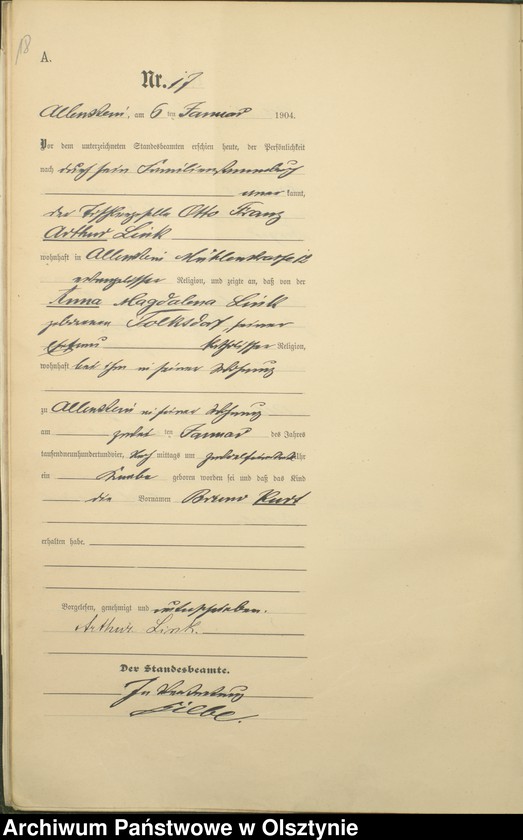 18
A.
Nr. 17
Allenstein, am 6 ten Januar 1904.
Vor dem unterzeichneten Standesbeamten erschien heute, der Persönlichkeit
nach durch sein Familienstammbuch
aner kannt,
der Tischlergeselle Otto Franz
Arthur Link
wohnhaft in Allenstein Mühlenstrasse
evangelischer Religion, und zeigte an, daß von der
Anna Magdalena Link
geborenen Tolksdorf, seiner
Ehefrau katholischer Religion,
wohnhaft bei ihm in seiner Wohnung
zu Allenstein in seiner Wohnung
am ten Januar des Jahres
tausendneunhundertundvier, Nach mittags um Uhr
ein Knabe geboren worden sei und daß das Kind
die Vornamen Bruno Kurt
erhalten habe.
Vorgelesen, genehmigt und unterschrieben.
Arthur Link.
Der Standesbeamte.
In Vertretung
Archiwum Państwowe w Olsztynie